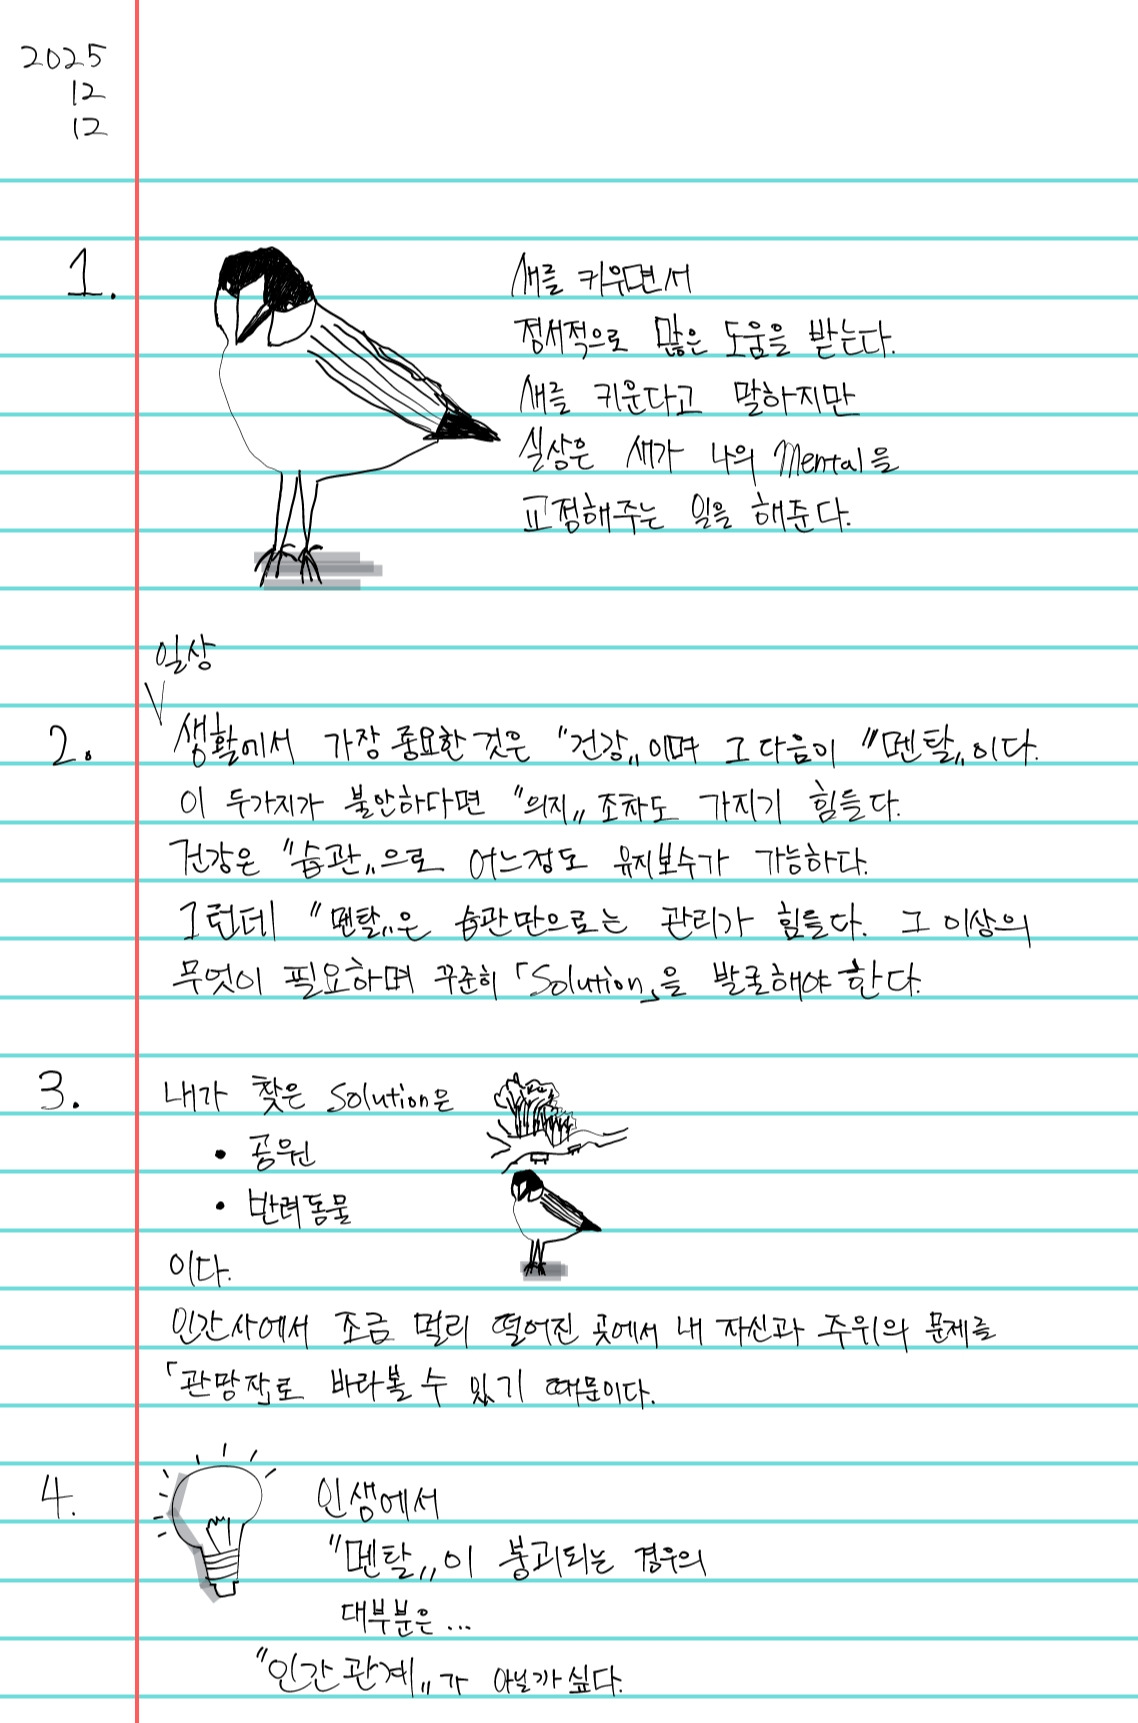 2025
12
12
1.
새를 키우면서
정서적으로 많은 도움을 받는다.
새를 키운다고 말하지만
실상은 새가 나의 Mental을
교정해주는 일을 해준다.
일상
2. 생활에서 가장 중요한 것은 "건강"이며 그 다음이 "멘탈"이다.
이 두가지가 불안하다면 "의지"조차도 가지기 힘들다.
건강은 "습관"으로 어느정도 유지보수가 가능하다.
그런데 "멘탈"은 습관만으로는 관리가 힘들다. 그 이상의
무엇이 필요하며 꾸준히 「Solution」을 발굴해야 한다.
3. 내가 찾은 Solution은
• 공원
• 반려동물
이다.
인간사에서 조금 멀리 떨어진 곳에서 내 자신과 주위의 문제를
「관망자」로 바라볼 수 있기 때문이다.
4. 인생에서
"멘탈"이 붕괴되는 경우의
대부분은...
"인간관계"가 아닐까싶다.